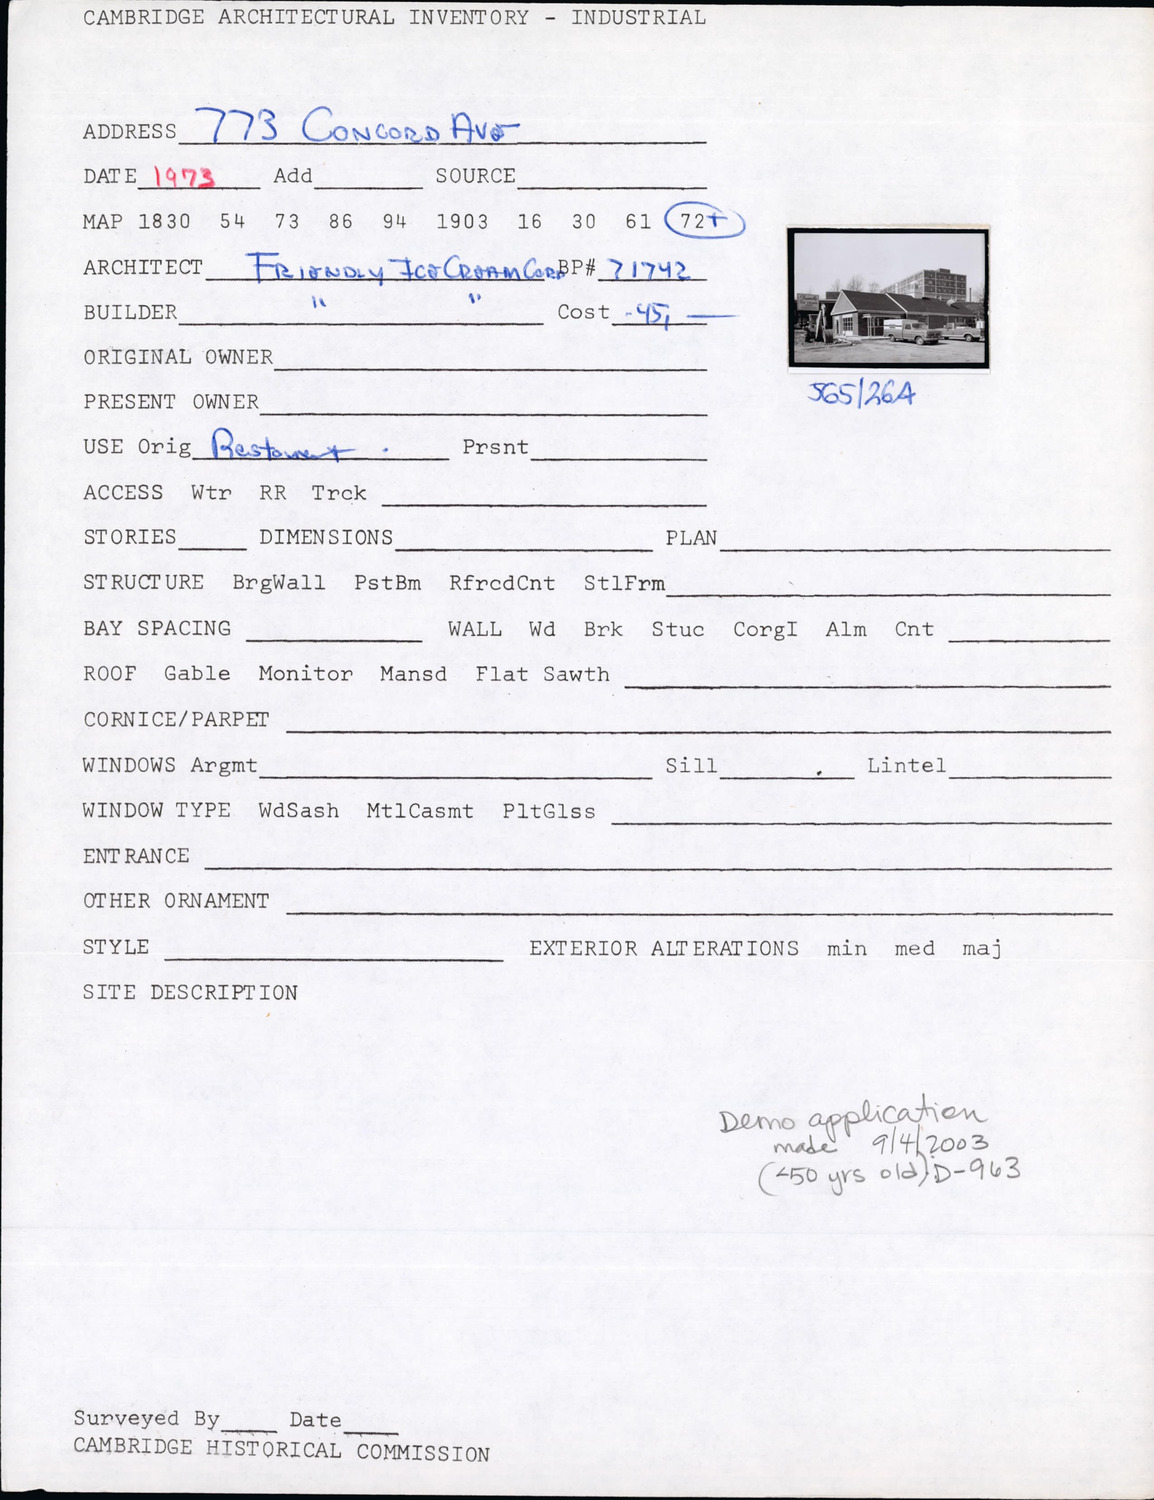 CAMBRIDGE ARCHITECTURAL INVENTORY - INDUSTRIAL
ADDRESS 773 CONCORD AVE
DATE 1973 Add SOURCE
MAP 1830 54 73 86 94 1903 16 30 61 72+
ARCHITECT FRIENDLY ICE CREAM CORP BP# 71742
BUILDER " " Cost -45, —
ORIGINAL OWNER
PRESENT OWNER
565/26A
USE Orig Restaurant . Prsnt
ACCESS Wtr RR Trck
STORIES DIMENSIONS PLAN
STRUCTURE BrgWall PstBm RfrcdCnt StlFrm
BAY SPACING WALL Wd Brk Stuc CorgI Alm Cnt
ROOF Gable Monitor Mansd Flat Sawth
CORNICE/PARPET
WINDOWS Argmt Sill Lintel
WINDOW TYPE WdSash MtlCasmt PltGlss
ENTRANCE
OTHER ORNAMENT
STYLE EXTERIOR ALTERATIONS min med maj
SITE DESCRIPTION
Demo application
made 9/4/2003
(<50 yrs old) D-963
Surveyed By Date
CAMBRIDGE HISTORICAL COMMISSION